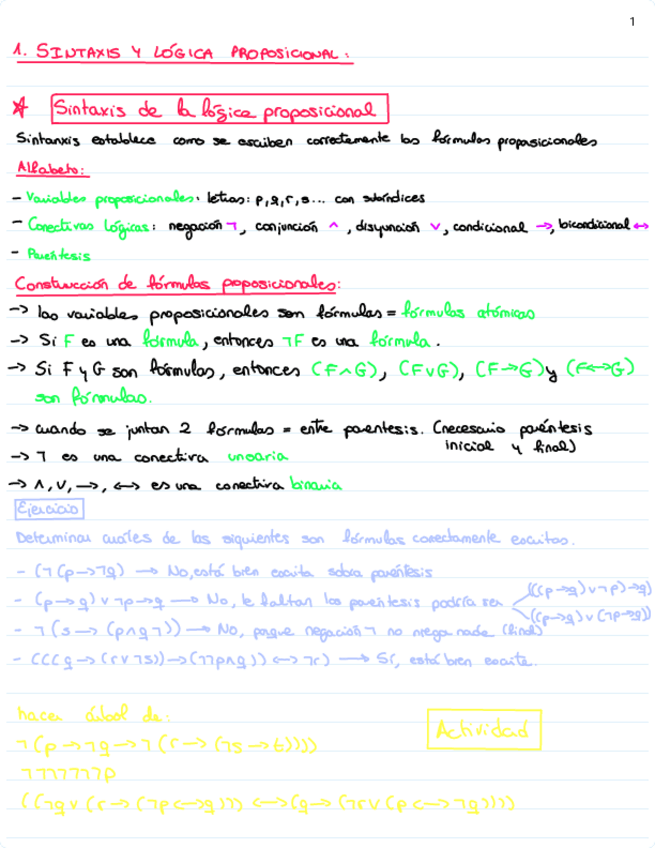 1
1. SINTAXIS Y LÓGICA PROPOSICIONAL:
Sintaxis de la lógica proposicional
Sintanxis establece como se escriben correctamente las fórmulas proposicionales
Alfabeto:
- Variables proposicionales: letras: p,q,r,s... con subíndices
- Conectivas lógicas: negación ¬, conjunción ∧, disyunción ∨, condicional →, bicondicional ↔
- Paréntesis
Construcción de fórmulas poposicionales:
→ las variables proposicionales son fórmulas = fórmulas atómicas
→ Si F es una fórmula, entonces ¬F es una fórmula.
→ Si F y G son fórmulas, entonces (F∧G), (F∨G), (F→G) y (F↔G)
son fórmulas.
→ cuando se juntan 2 fórmulas = entre parentesis. (necesario paréntesis
inicial y final)
→ ¬ es una conectiva unaria
→ ∧, ∨, →, ↔ es una conectiva binaria
Ejercicio
Determinar cuáles de las siguientes son fórmulas correctamente escritas.
- (¬(p→¬q) → No, está bien escrita sobra paréntesis
- (p→q)∨¬p→q → No, le faltan los paréntesis podría ser
((p→q)∨¬p)→q)
((p→q)∨(¬p→q))
- ¬(s→(p∧q¬)) → No, porque negación ¬ no niega nada (final)
- (((q→(r∨¬s))→(¬¬p∧q))↔¬r) → Sí, está bien escrita.
hacer árbol de:
Actividad
¬(p→¬q→¬(r→(¬s→t))))
¬¬¬¬¬¬¬p
((¬q∨(r→(¬p↔q)))↔(q→(¬r∨(p↔¬q))))